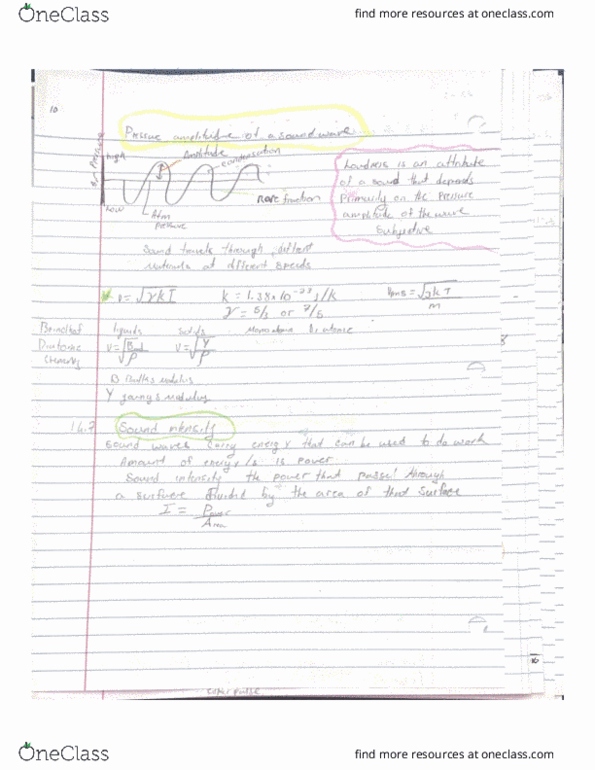 OneClass
find more resources at oneclass.com
10
Pressue amplitude of a sound wave
Air Pressure
high
Amplitude
condensation
low
Atm
pressure
rarefraction
Loudness is an attribute
of a sound that depends
Primarily on the Pressure
amplitude of the wave
Subjective
Sound travels through different
Materials at different speeds
v = √γkT
k = 1.38x10⁻²³ J/k
γ = 5/3 or 7/5
liquids
solids
V = √
V = √Y/ρ
B Bulks modulus
Y youngs modulus
Sound intensity
Sound waves carry energy that can be used to do work
Amount of energy/s is power
Sound intensity the power that passes through
a surface divided by the area of that surface
I = Power
Area
OneClass
find more resources at oneclass.com